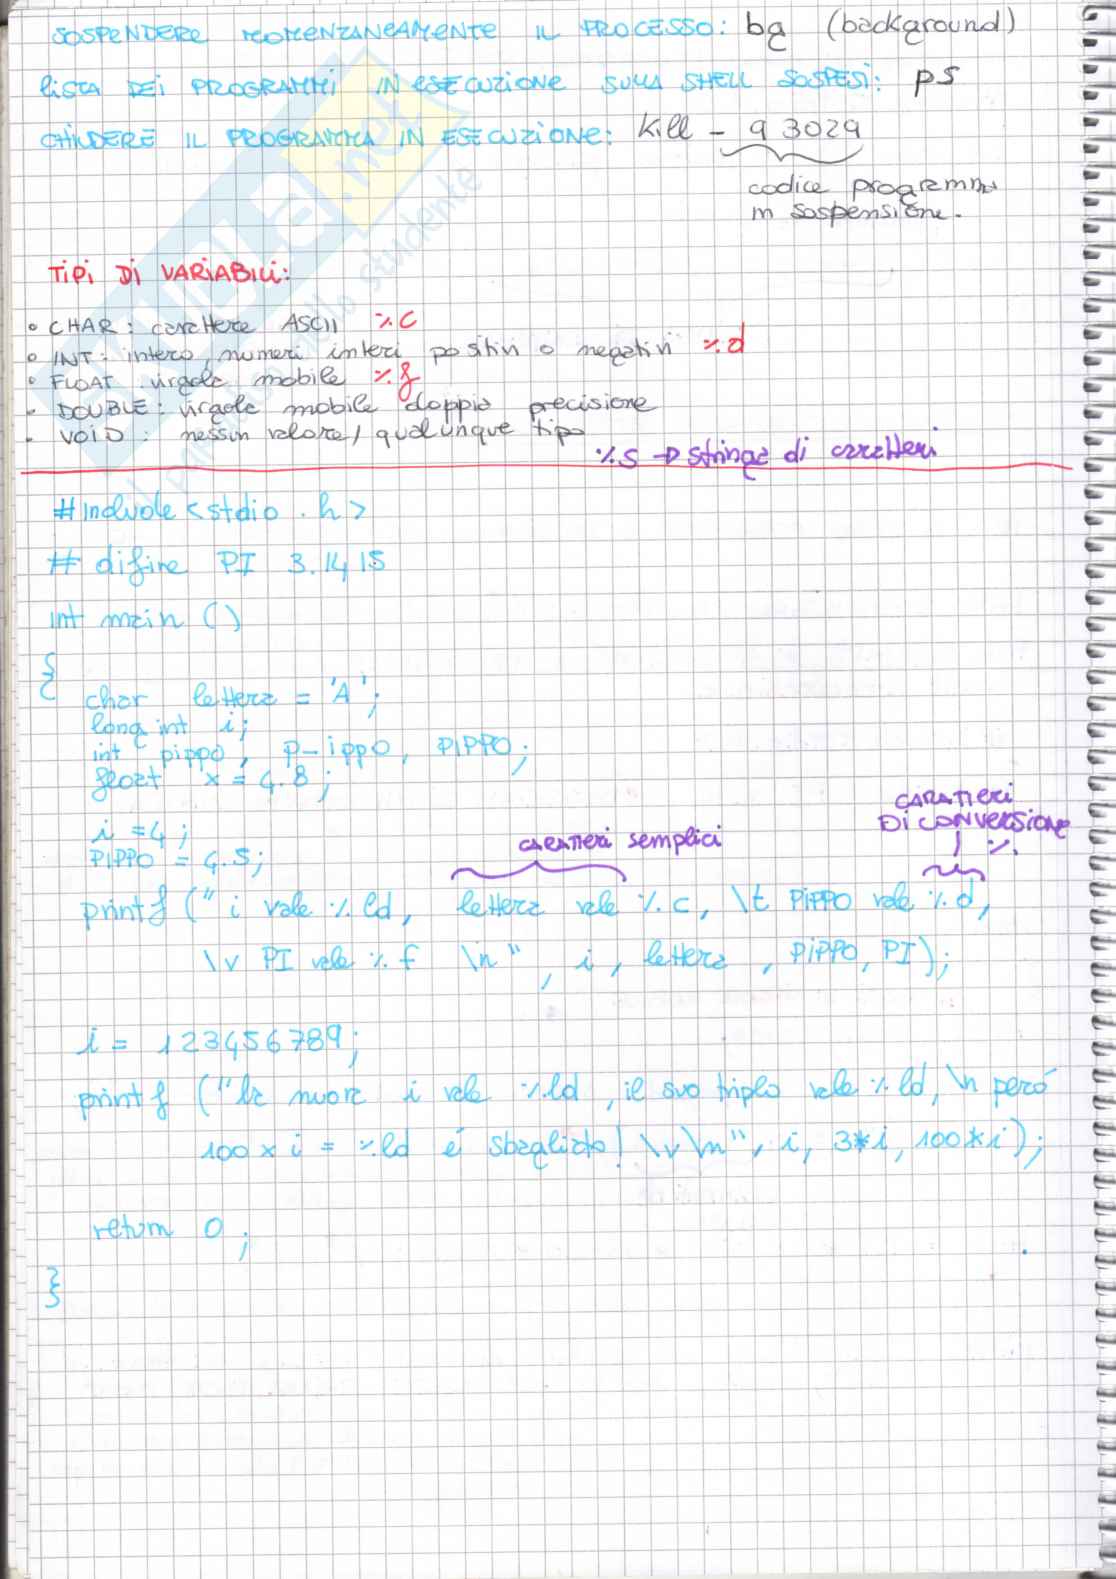 SOSPENDERE MOMENTANEAMENTE IL PROCESSO: bg (background)
lista DEI PROGRAMMI IN esecuzione sulla SHELL SOSPESi: ps
CHIUDERE IL PROGRAMMA IN ESECUZIONE: Kill - 9 3029
codice programma
in sospensione.
TiPi Di VARiABiLi:
• CHAR: carattere ASCII %c
• INT: intero, numeri interi positivi o negativi %d
• FLOAT: virgola mobile %f
• DOUBLE: virgola mobile doppia precisione
• VOID: nessun valore/qualunque tipo
%s → stringa di caratteri
#include <stdio.h>
# difine PI 3.1415
int main ()
{
char lettera = 'A';
long int i;
int pippo, p_ippo, PIPPO;
float x = 4.8;
i = 4;
PIPPO = 4.5;
CARATTERi semplici
CARATTERi
Di CONVERSIONE
%
printf (" i vale %ld, lettera vale %c, \t PIPPO vale %d,
\v PI vale %f \n", i, lettera, PIPPO, PI);
i = 123456789;
printf ("la nuova i vale %ld, il suo triplo vale %ld, \n peró
100 x i = %ld é sbagliato! \v \n", i, 3*i, 100*i);
return 0;
}